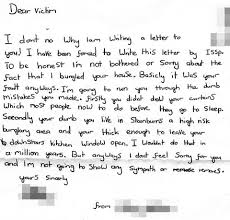 Dear Victim
I dont no Why Iam Writing a letter to
you! I have been forced to Write this letter by ISSP.
To be honest I'm not bothered or Sorry about the
fact that I burgled your house. Basicly it was your
fault anyways. I'm going to run you through the dumb
mistakes you made. Firstly you didnt draw your curtains
Which most people now to do before they go to Sleep.
Secondly your dumb you live in Stanburn a high risk
burglary area and your thick enough to leave your
downstairs kitchen window open. I wouldnt do that in
a million years. But anyways I dont feel Sorry for you
and I'm not going to Show any Sympathy or remorse.
yours Sincerly
from